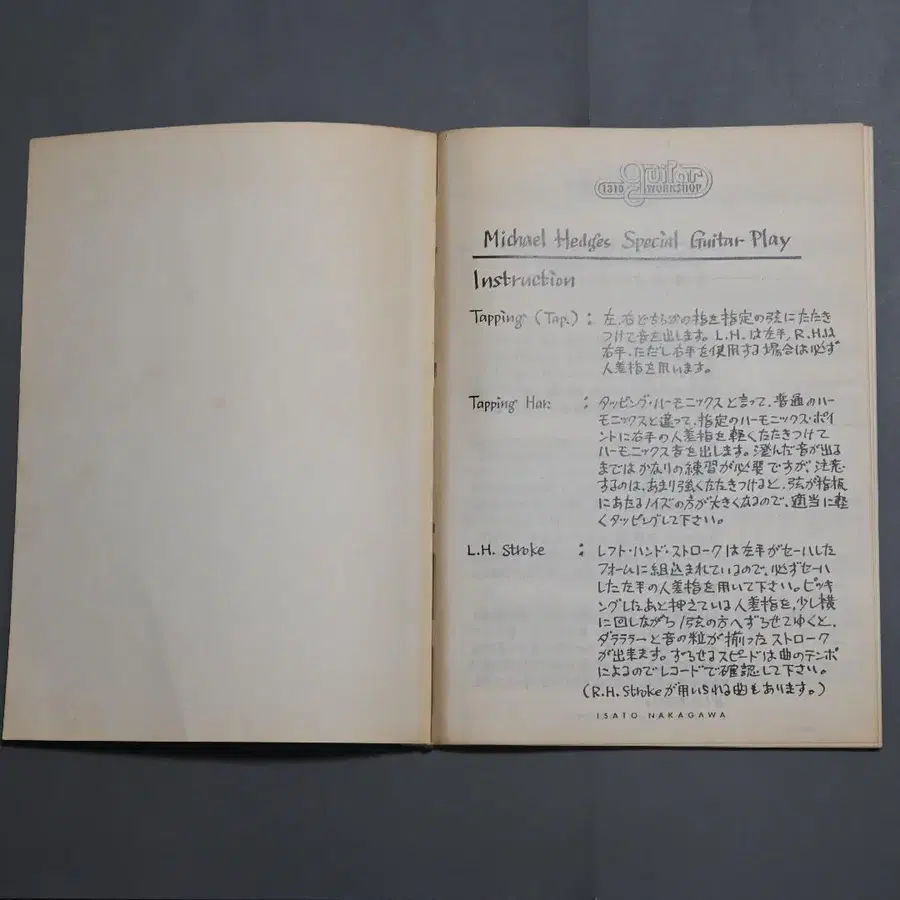 1310 guitar WORKSHOP
Michael Hedges Special Guitar Play
Instruction
Tapping (Tap.) : 左、右どちらかの指を指定の弦にたたき
つけて音を出します。L.H.は左手, R.H.は
右手. ただし右手を使用する場合は必ず
人差指を用います。
Tapping Har. : タッピング・ハーモニックスと言って、普通のハー
モニックスと違って、指定のハーモニックス・ポイ
ントに右手の人差指を軽くたたきつけて
ハーモニックス音を出します。澄んだ音が出る
まではかなりの練習が必要ですが、注意
するのは、あまり強くたたきつけると、弦が指板
にあたるノイズの方が大きくなるので、適当に軽
くタッピングして下さい。
L.H. Stroke : レフト・ハンド・ストロークは左手がセーハした
フォームに組込まれているので、必ずセーハ
した左手の人差指を用いて下さい。ピッキ
ングしたあと押さえている人差指を、少し横
に回しながら1弦の方へずらせてゆくと、
ダララララーと音の粒が揃ったストローク
が出来ます。ずらせるスピードは曲のテンポ
によるのでレコードで確認して下さい。
(R.H. Strokeが用いられる曲もあります。)
ISATO NAKAGAWA